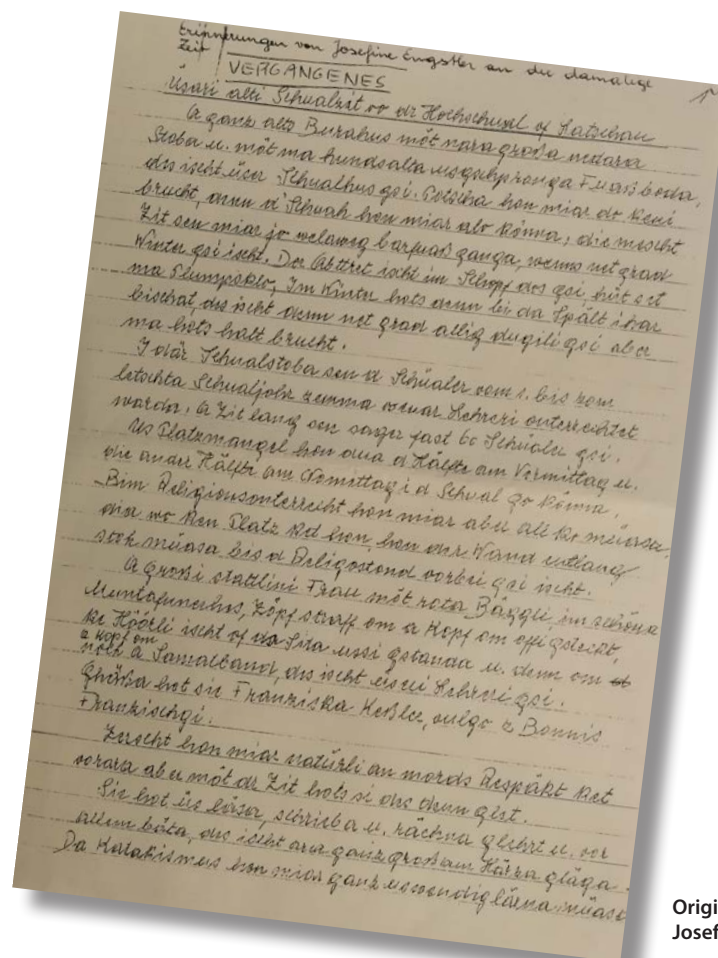 Erinnerungen von Josefine Engstler an die damalige
Zeit
1
VERGANGENES
Üsari alti Schualzit vo dr Hochschual of Latschau
A ganz alts Burahus möt nara großa nedara
Stoba u. möt ma hundsalta usgschpronga Fuaßboda,
des ischt üser Schualhus gsi. Potscha hon miar do keni
brucht, denn d'Schuah hon miar alo könna, die mescht
Zit sen miar jo welaweg barfuaß ganga, wenns net grad
Winter gsi ischt. Der Abttret ischt im Schopf dos gsi, hüt set
ma Plumpsklo, Im Winter hots denn bi da Spält ihar
bischat, des ischt denn net grad allig dugili gsi aber
ma hots halt brucht.
I där Schualstoba sen d Schüaler vom 1. bis zom
letschta Schualjohr zemma vonar Lehreri onterrechtet
worda. A Zit lang sen sogar fast 60 Schüaler gsi.
Us Platzmangel hon dua d Hälfte am Vormittag u.
die ander Hälfte am Nomittag i d Schual go könna.
Bim Religionsonterrecht hon miar aber all ko müassa,
dia wo ken Platz ket hon, hon der Wand entlang
stoh müasa bis d Religostond vorbei gsi ischt.
A großi stattlini Frau möt rota Bäggli, im schöna
Muntafunerhus, Zöpf straff om a Kopf om offi gsteckt,
ke Höörli ischt of da Sita ussi gstanda u. denn om
a Kopf om
noch a Samatband, des ischt üseri Lehreri gsi.
Ghäßa hot sie Franziska Keßler, vulgo s Bonnis
Franzischgi.
Zerscht hon miar natürli an mords Respäkt ket
vorara aber möt dr Zit hots si des denn glet.
Sie hot üs läsa, schrieba u. rächna glehrt u. vor
allem bäta, des ischt ara ganz groß am Härza gläga.
Da Katakismus hon miar ganz uswendig lärna müasa
Origi
Josef